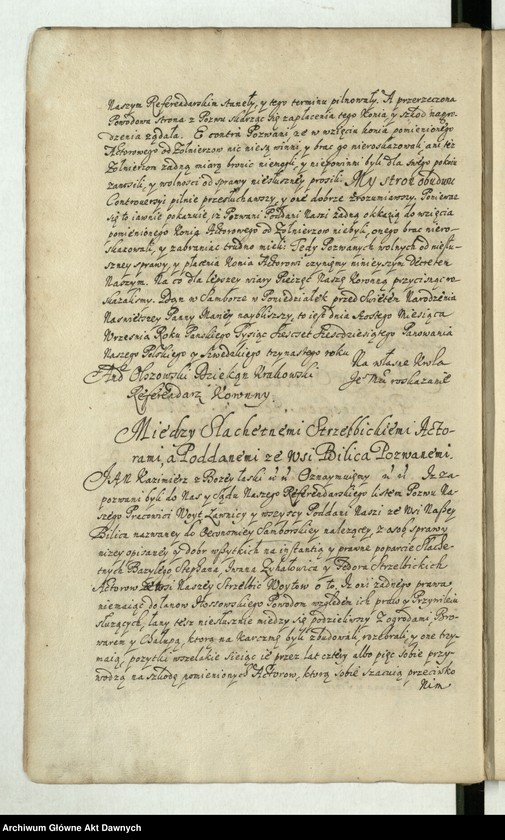 Naszym Referendarskim stanęły, y tego terminu pilnowały. A przerzeczona
Powodowa Strona z Pozwu skarząc się zapłacenia tego Konia y szkod nagro-
dzenia ządała. E contra Pozwani ze w wzięciu konia pomienionego
Actorowego od Zołnierzow nic nie są winni, y brac go nieroskazowali ani też
Zołnierzom zadną miarą bronic niemogli, y niepowinni byli dla swego
zanosili, y wolnosci od sprawy niesłuszney prosili. My stron obudwu
Controversii pilnie przesłuchawszy, y oné dobrze zrozumiawszy. Poniewasz
się to iawnie pokazuie, iz Pozwani Poddani Naszi żadną okkazią do wzięcia
pomienionego Konia Actorowego od Zołnierzow niebyli, onego brac nieroz-
skazowali, y zabraniac trudno mieli. Tedy Pozwanych wolnych od niesłu-
szney sprawy, y płacenia Konia Actorowi czynięmy ninieyszym Decretem
Naszym. Na co dla lepszey wiary Pieczęć Naszę Koronną przycisnąć ro-
skazalismy. Dan w Samborze w Poniedziałek przed Swiętem Narodzenia
Naświętszey Panny Mariey naybliszszy, to iest dnia szostego Miesiąca
Wrzesnia Roku Panskiego Tysiąc Szescset Szescdziesiątego Panowania
Naszego Polskiego y Szwedzkiego trzynastego roku
And Olszowski Dziekan Krakowski
Referendarz Koronny.
Na własne Krola
Je° Mci roskazanie
Między Slachetnemi Strzelbickiemi Acto-
rami, a Poddanemi ze Wsi Bilica Pozwanemi.
JAN Kazimierz z Bozey łaski
Oznaymuięmy
Iz za-
pozwani byli do Nas y Sądu Naszego Referendarskiego listem Pozwu Na-
szego Pracowici Woyt Ławnicy y wszyscy Poddani Naszi ze Wsi Naszey
Bilica nazwaney do Oeconomiey Samborskiey nalezącey, z osob sprawy
nizey opisaney y Dobr wszytkich na instantią y prawne poparcie Slache-
tnych Bazylego Stephana, Iwana Zykałowicza y Fedora Strzelbickich
Actorow ze Wsi Naszey Strzelbic Woytow o to. Iz oni żadnego prawa
niemaiąc do łanow Hoszowskiego Powodom względem ich praw y Przywileiu
słuzących, łany tesz niesłusznie między się podzieliwszy z ogrodami, Bro-
warem y Chałupą, ktorą na karczmę byli zbudowali, rozebrali, y one trzy-
maią, pozytki wszelakie sieiąc ie przez lat cztery albo pięc sobie przy-
wodzą na szkodę pomienionych Actorow, ktorą sobie szacuią przeciwko
Nim
Archiwum Główne Akt Dawnych